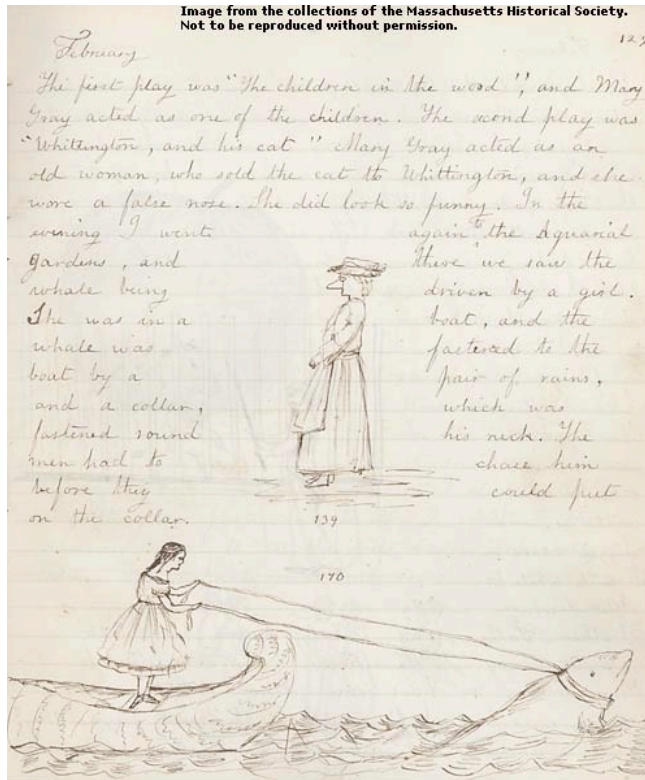 Image from the collections of the Massachusetts Historical Society.
Not to be reproduced without permission.
129
February
The first play was "The children in the wood", and Mary
Gray acted as one of the children. The second play was
"Whittington, and his cat" Mary Gray acted as an
old woman, who sold the cat to Whittington, and she
wore a false nose. She did look so funny. In the
evening I went again to the Aquarial
gardens, and there we saw the
whale being driven by a girl.
She was in a boat, and the
whale was fastened to the
boat by a pair of rains,
and a collar, which was
fastened round his neck. The
men had to chace him
before they could put
on the collar.
139
170